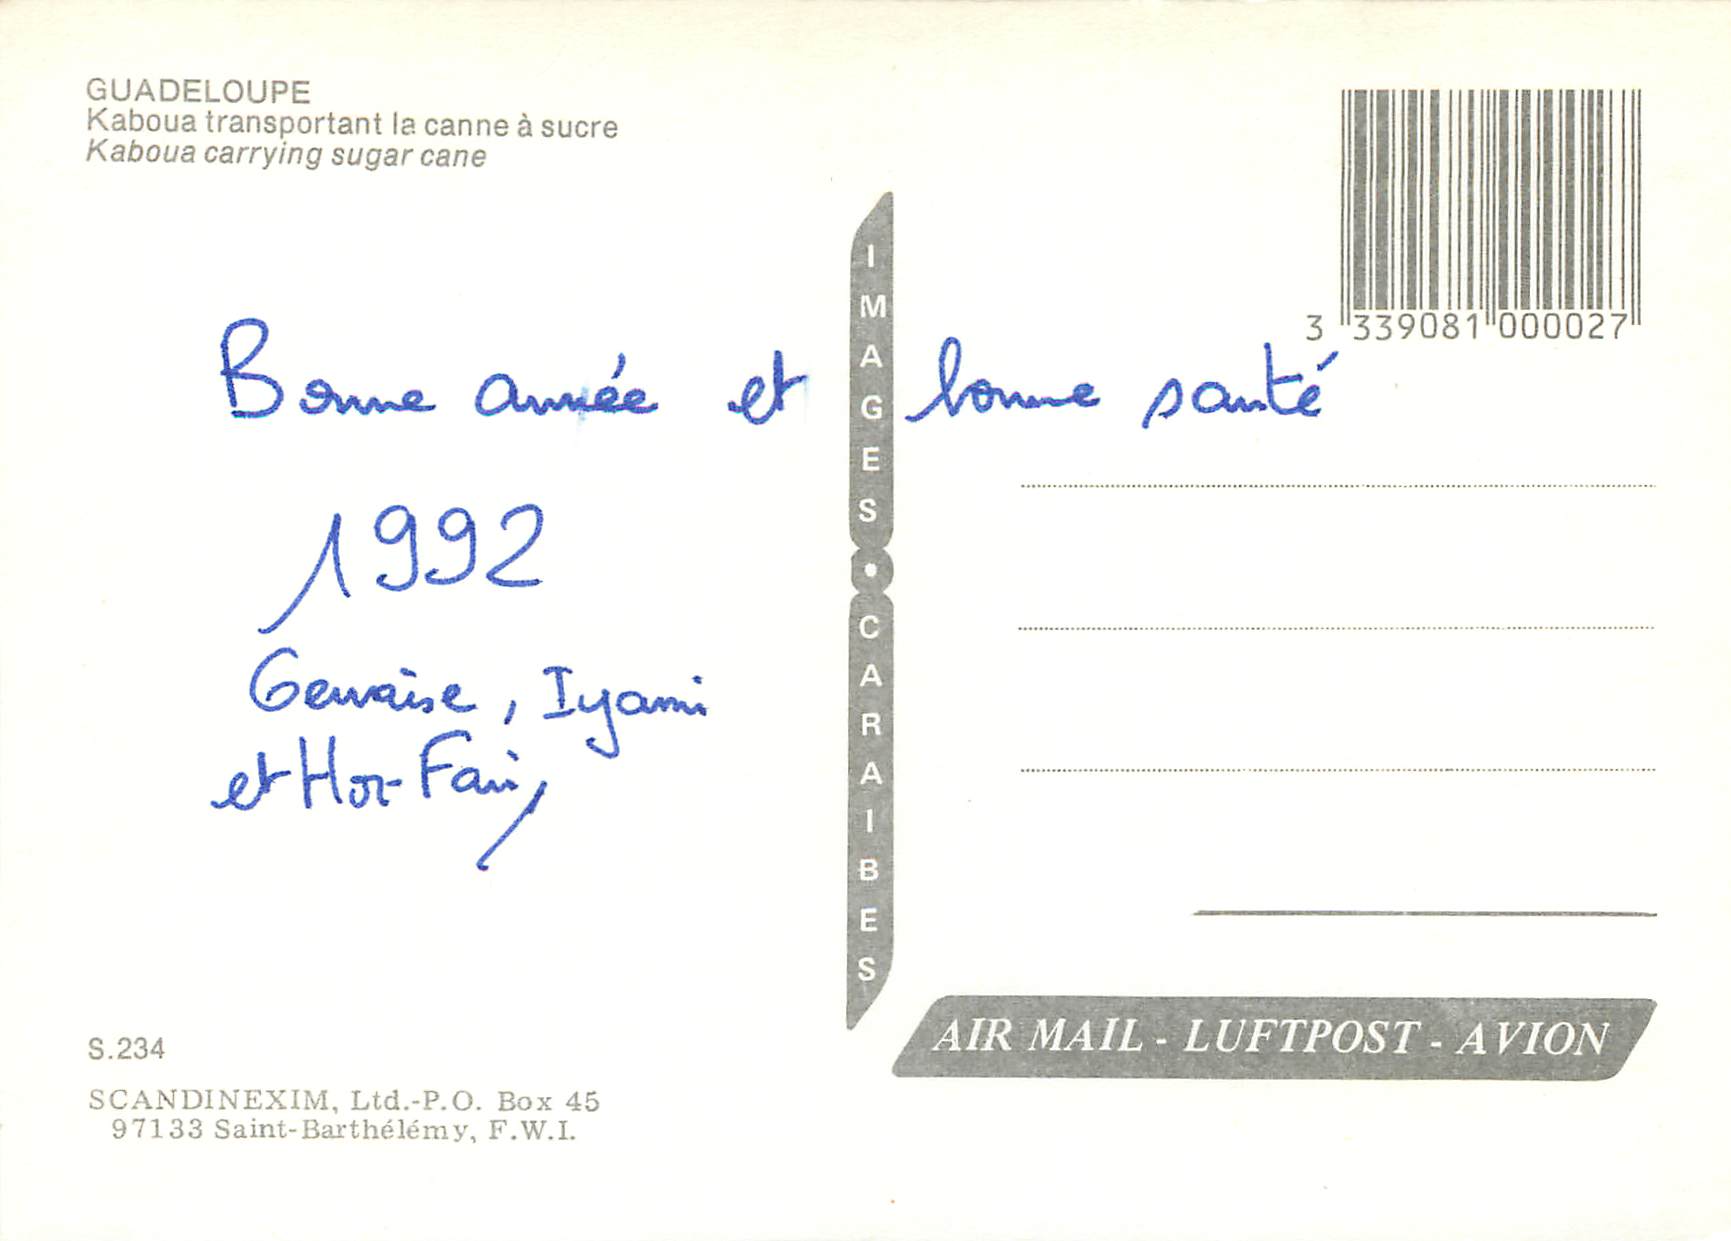 GUADELOUPE
Kaboua transportant la canne à sucre
Kaboua carrying sugar cane
3 339081 000027
IMAGES • CARAIBES
Bonne année et bonne santé
1992
Gervaise, Iyami
et Hor-Fari,
S.234
SCANDINEXIM, Ltd.-P.O. Box 45
97133 Saint-Barthélémy, F.W.I.
AIR MAIL - LUFTPOST - AVION